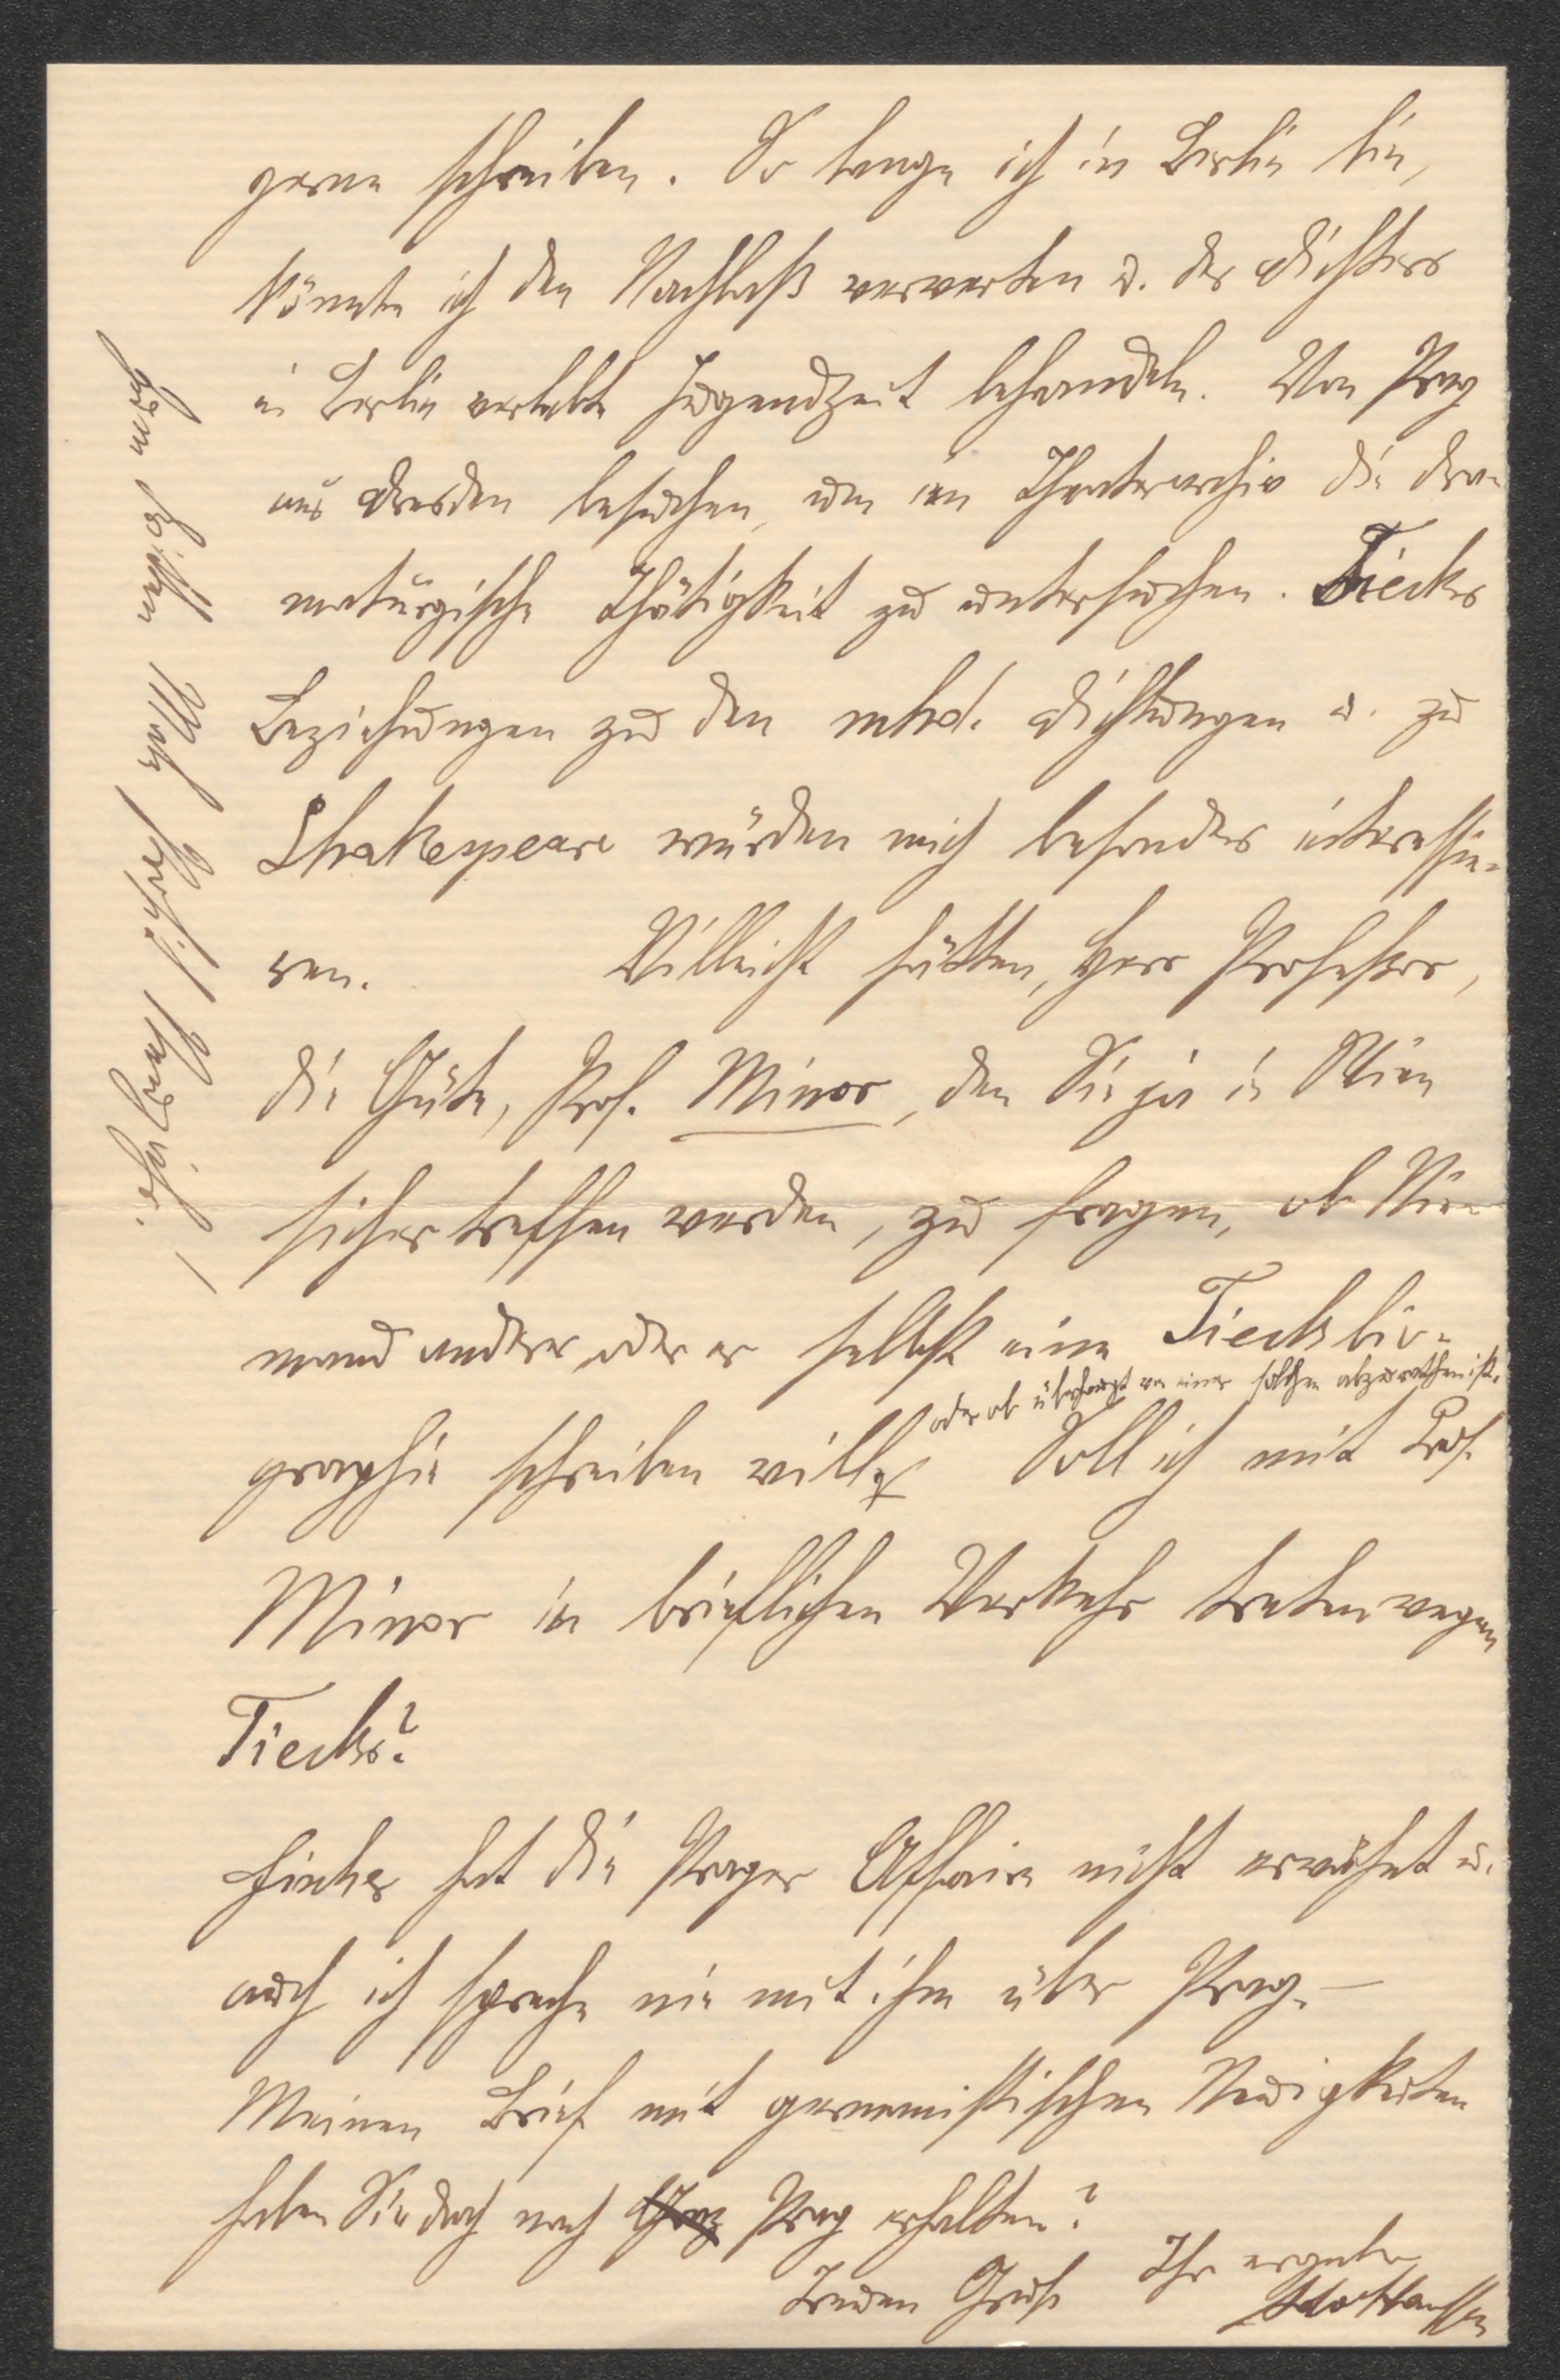 gerne schreiben. So lange ich in Berlin bin,
könnte ich den Nachlaß verwerten u. des Dichters
in Berlin verlebte Jugendzeit behandeln. Von Prag
aus Dresden besuchen, um im Theaterarchiv die dra-
maturgische Thätigkeit zu untersuchen. Tiecks
Beziehungen zu den mhd. Dichtungen u. zu
Shakespeare würden mich besonders interessie-
ren. Villeicht hätten, Herr Professor,
die Güte, Prof. Minor, den Sie ja in Wien
sicher treffen werden, zu fragen, ob Nie-
mand anderer oder er selbst eine Tieckbio-
oder ob überhaupt von einer solchen abzurathen ist.
graphie schreiben will. Soll ich mit Prof.
Minor in brieflichen Verkehr treten wegen
Tiecks?
hat die Prager Affaire nicht erwähnt u.
auch ich spreche nie mit ihm über Prag. –
Meinen Brief mit germanistischen Neuigkeiten
haben Sie doch nach Graz Prag erhalten?
Treuen Gruß Ihr ergeb.